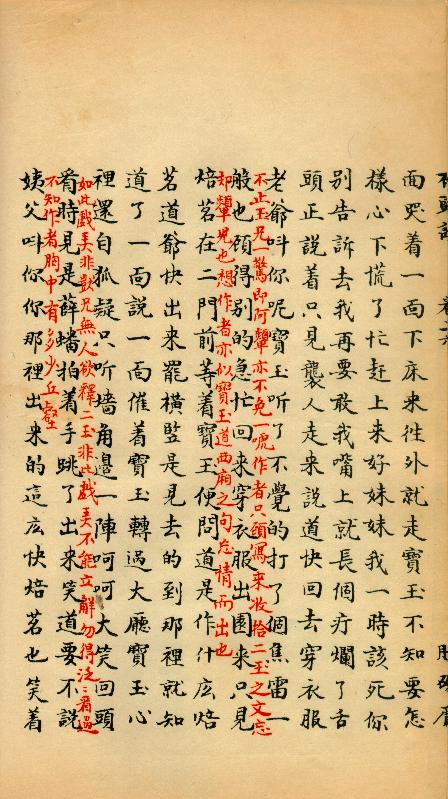 面哭着一面下床来徃外就走寳玉不知要怎
樣心下慌了忙赶上来好妹妹我一時該死你
别告訴去我再要敢我嘴上就長個疔爛了舌
頭正説着只見襲人走来説道快回去穿衣服
老爺呌你呢寳玉听了不覺的打了個焦雷一
不止玉兄一驚即阿顰亦不免一唬作者只顧寫来收拾二玉之文忘
般也顧得别的急忙回来穿衣服出園来只見
却顰兒也想作者亦似寳玉道西廂之句忘情而出也
焙茗在二門前等着寳玉便問道是作什庅焙
茗道爺快出来罷横竪是見去的到那裡就知
道了一面説一面催着寳玉轉過大廳寳玉心
裡還自狐疑只听墙角邊一陣呵呵大笑回頭
如此戲弄非獃兄無人欲釋二玉非此戲弄不能立觧勿得泛泛看過
看時見是薛蟠拍着手跳了出来笑道要不説
不知作者胸中有多少丘壑
姨父呌你你那裡出来的這庅快焙茗也笑着